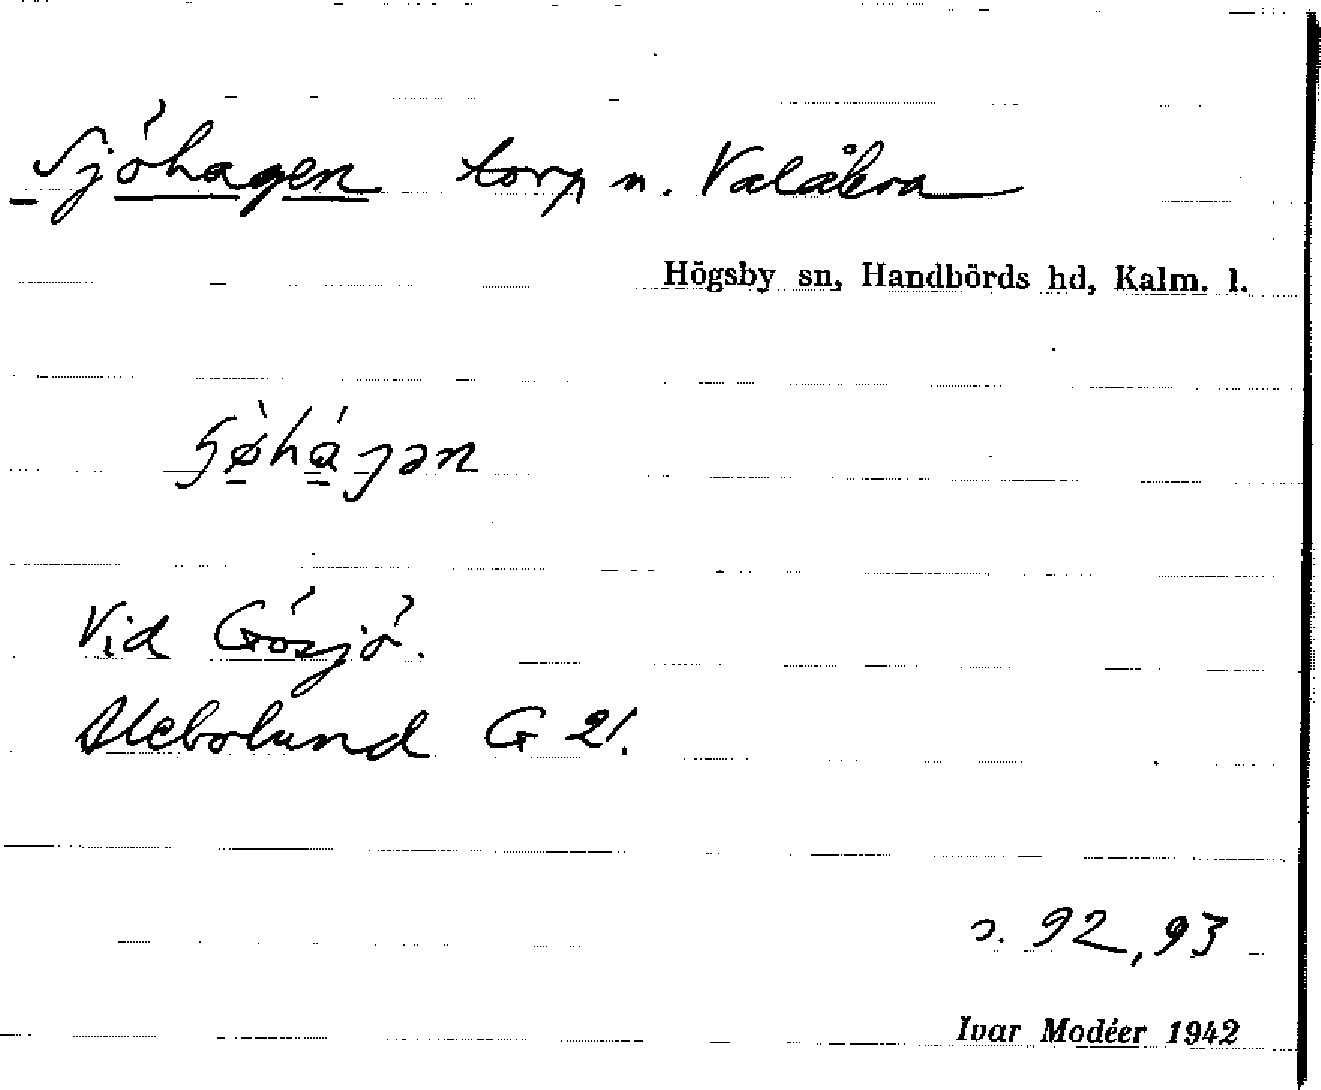 Sjöhagen torp n. Valåkra
Högsby sn, Handbörds hd, Kalm. l.
Vid Gösjö.
Alebolund G 21.
s. 92, 93
Ivar Modéer 1942